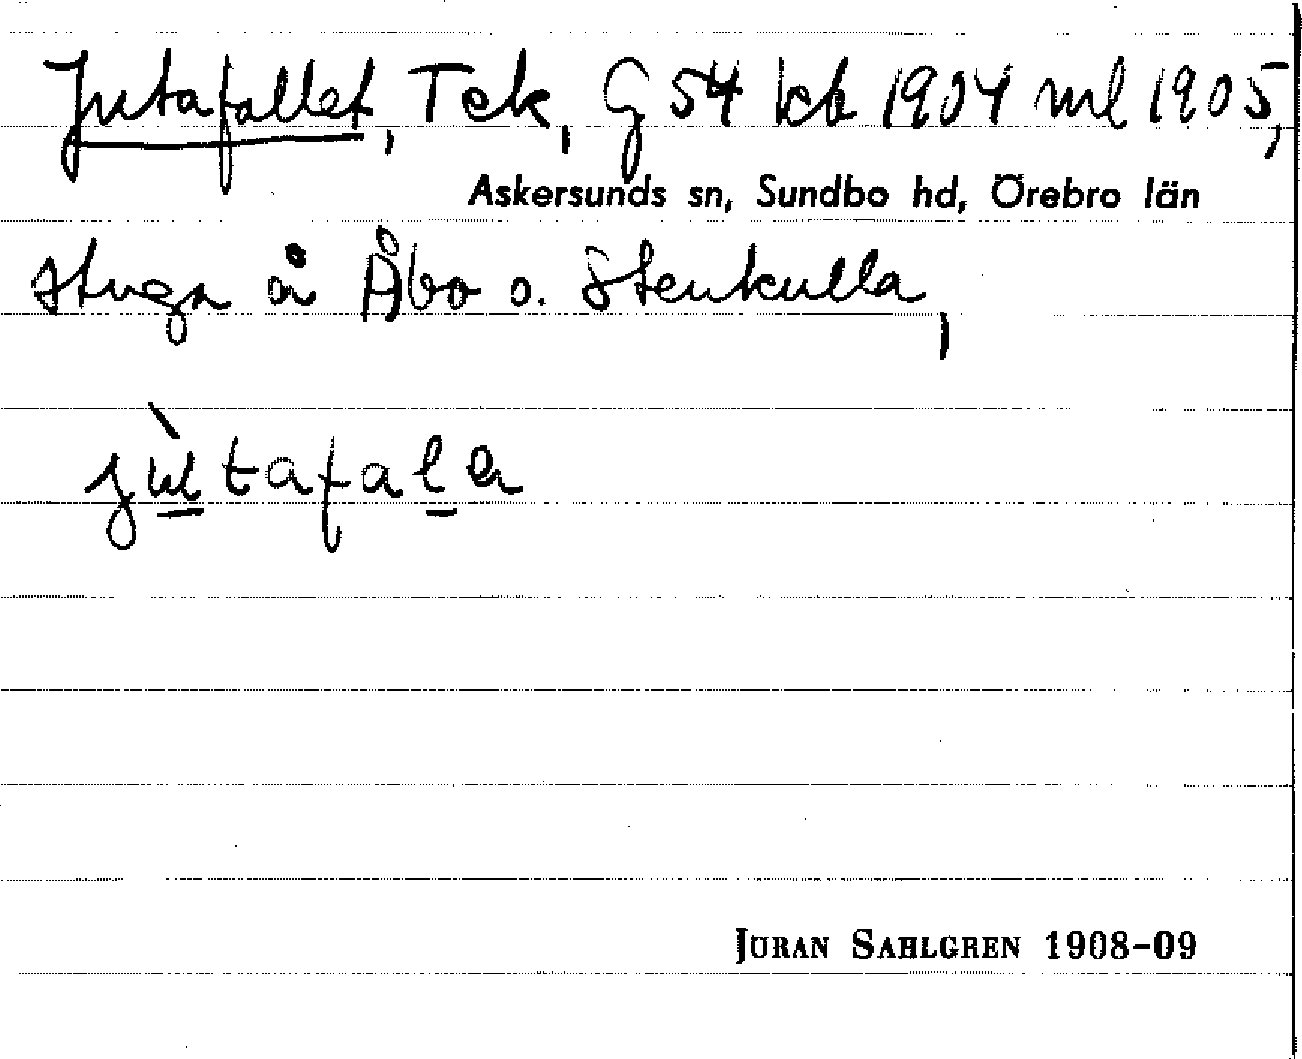 Jutafallet, Tek, G 54 kb 1904 ml 1905,
Askersunds sn, Sundbo hd, Örebro län
stuga å Åbo o. Stenkulla,
jùtafala
JÖRAN SAHLGREN 1908-09